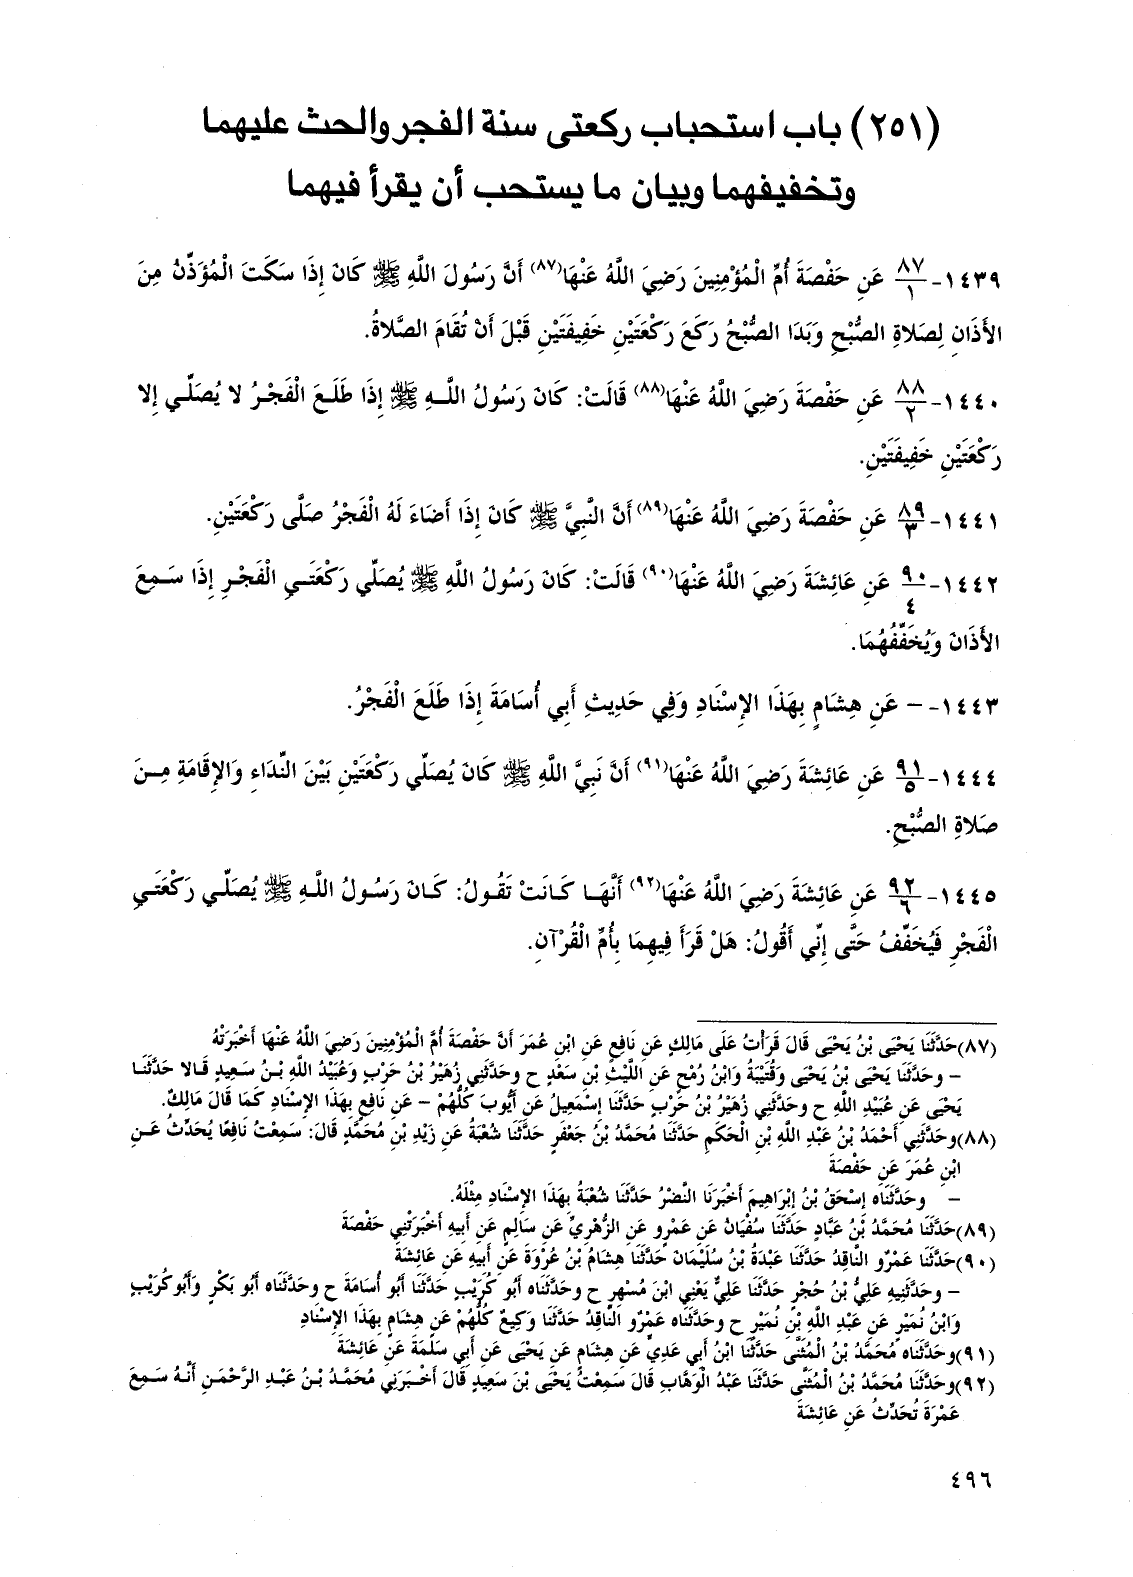 (٢٥١) باب استحباب ركعتى سنة الفجر والحث عليهما
وتخفيفهما وبيان ما يستحب أن يقرأ فيهما
١٤٣٩- ٨٧/١ عَنِ حَفْصَةَ أُمِّ الْمُؤْمِنِينَ رَضِيَ اللَّهُ عَنْهَا(٨٧) أَنَّ رَسُولَ اللَّهِ ﷺ كَانَ إِذَا سَكَتَ الْمُؤَذِّنُ مِنَ
الأَذَانِ لِصَلاةِ الصُّبْحِ وَبَدَا الصُّبْحُ رَكَعَ رَكْعَتَيْنِ خَفِيفَتَيْنِ قَبْلَ أَنْ تُقَامَ الصَّلاةُ.
١٤٤٠- ٨٨/٢ عَنِ حَفْصَةَ رَضِيَ اللَّهُ عَنْهَا(٨٨) قَالَتْ: كَانَ رَسُولُ اللَّهِ ﷺ إِذَا طَلَعَ الْفَجْرُ لا يُصَلِّي إِلا
رَكْعَتَيْنِ خَفِيفَتَيْنِ.
١٤٤١- ٨٩/٣ عَنِ حَفْصَةَ رَضِيَ اللَّهُ عَنْهَا(٨٩) أَنَّ النَّبِيَّ ﷺ كَانَ إِذَا أَضَاءَ لَهُ الْفَجْرُ صَلَّى رَكْعَتَيْنِ.
١٤٤٢- ٩٠/٤ عَنِ عَائِشَةَ رَضِيَ اللَّهُ عَنْهَا(٩٠) قَالَتْ: كَانَ رَسُولُ اللَّهِ ﷺ يُصَلِّي رَكْعَتَيِ الْفَجْرِ إِذَا سَمِعَ
الأَذَانَ وَيُخَفِّفُهُمَا.
١٤٤٣- – عَنِ هِشَامٍ بِهَذَا الإِسْنَادِ وَفِي حَدِيثِ أَبِي أُسَامَةَ إِذَا طَلَعَ الْفَجْرُ.
١٤٤٤- ٩١/٥ عَنِ عَائِشَةَ رَضِيَ اللَّهُ عَنْهَا(٩١) أَنَّ نَبِيَّ اللَّهِ ﷺ كَانَ يُصَلِّي رَكْعَتَيْنِ بَيْنَ النِّدَاءِ وَالإِقَامَةِ مِنَ
صَلاةِ الصُّبْحِ.
١٤٤٥- ٩٢/٦ عَنِ عَائِشَةَ رَضِيَ اللَّهُ عَنْهَا(٩٢) أَنَّهَا كَانَتْ تَقُولُ: كَانَ رَسُولُ اللَّهِ ﷺ يُصَلِّي رَكْعَتَيِ
الْفَجْرِ فَيُخَفِّفُ حَتَّى إِنِّي أَقُولُ: هَلْ قَرَأَ فِيهِمَا بِأُمِّ الْقُرْآنِ.
(٨٧)حَدَّثَنَا يَحْيَى بْنُ يَحْيَى قَالَ قَرَأْتُ عَلَى مَالِكٍ عَنِ نَافِعٍ عَنِ ابْنِ عُمَرَ أَنَّ حَفْصَةَ أُمَّ الْمُؤْمِنِينَ رَضِيَ اللَّهُ عَنْهَا أَخْبَرَتْهُ
– وحَدَّثَنَا يَحْيَى بْنُ يَحْيَى وَقُتَيْبَةُ وَابْنُ رُمْحٍ عَنِ اللَّيْثِ بْنِ سَعْدٍ ح وحَدَّثَنِي زُهَيْرُ بْنُ حَرْبٍ وَعُبَيْدُ اللَّهِ بْنُ سَعِيدٍ قَالا حَدَّثَنَا
يَحْيَى عَنِ عُبَيْدِ اللَّهِ ح وحَدَّثَنِي زُهَيْرُ بْنُ حَرْبٍ حَدَّثَنَا إِسْمَعِيلُ عَنِ أَيُّوبَ كُلُّهُمْ – عَنِ نَافِعٍ بِهَذَا الإِسْنَادِ كَمَا قَالَ مَالِكٌ.
(٨٨)وحَدَّثَنِي أَحْمَدُ بْنُ عَبْدِ اللَّهِ بْنِ الْحَكَمِ حَدَّثَنَا مُحَمَّدُ بْنُ جَعْفَرٍ حَدَّثَنَا شُعْبَةُ عَنِ زَيْدِ بْنِ مُحَمَّدٍ قَالَ: سَمِعْتُ نَافِعًا يُحَدِّثُ عَنِ
ابْنِ عُمَرَ عَنِ حَفْصَةَ
– وحَدَّثَنَاه إِسْحَقُ بْنُ إِبْرَاهِيمَ أَخْبَرَنَا النَّضْرُ حَدَّثَنَا شُعْبَةُ بِهَذَا الإِسْنَادِ مِثْلَهُ.
(٨٩)حَدَّثَنَا مُحَمَّدُ بْنُ عَبَّادٍ حَدَّثَنَا سُفْيَانُ عَنِ عَمْرٍو عَنِ الزُّهْرِيِّ عَنِ سَالِمٍ عَنِ أَبِيهِ أَخْبَرَتْنِي حَفْصَةُ
(٩٠)حَدَّثَنَا عَمْرٌو النَّاقِدُ حَدَّثَنَا عَبْدَةُ بْنُ سُلَيْمَانَ حَدَّثَنَا هِشَامُ بْنُ عُرْوَةَ عَنِ أَبِيهِ عَنِ عَائِشَةَ
– وحَدَّثَنِيهِ عَلِيُّ بْنُ حُجْرٍ حَدَّثَنَا عَلِيٌّ يَعْنِي ابْنَ مُسْهِرٍ ح وحَدَّثَنَاه أَبُو كُرَيْبٍ حَدَّثَنَا أَبُو أُسَامَةَ ح وحَدَّثَنَاه أَبُو بَكْرٍ وَأَبُو كُرَيْبٍ
وَابْنُ نُمَيْرٍ عَنِ عَبْدِ اللَّهِ بْنِ نُمَيْرٍ ح وحَدَّثَنَاه عَمْرٌو النَّاقِدُ حَدَّثَنَا وَكِيعٌ كُلُّهُمْ عَنِ هِشَامٍ بِهَذَا الإِسْنَادِ
(٩١)وحَدَّثَنَاه مُحَمَّدُ بْنُ الْمُثَنَّى حَدَّثَنَا ابْنُ أَبِي عَدِيٍّ عَنِ هِشَامٍ عَنِ يَحْيَى عَنِ أَبِي سَلَمَةَ عَنِ عَائِشَةَ
(٩٢)وحَدَّثَنَا مُحَمَّدُ بْنُ الْمُثَنَّى حَدَّثَنَا عَبْدُ الْوَهَّابِ قَالَ سَمِعْتُ يَحْيَى بْنَ سَعِيدٍ قَالَ أَخْبَرَنِي مُحَمَّدُ بْنُ عَبْدِ الرَّحْمَنِ أَنَّهُ سَمِعَ
عَمْرَةَ تُحَدِّثُ عَنِ عَائِشَةَ
٤٩٦